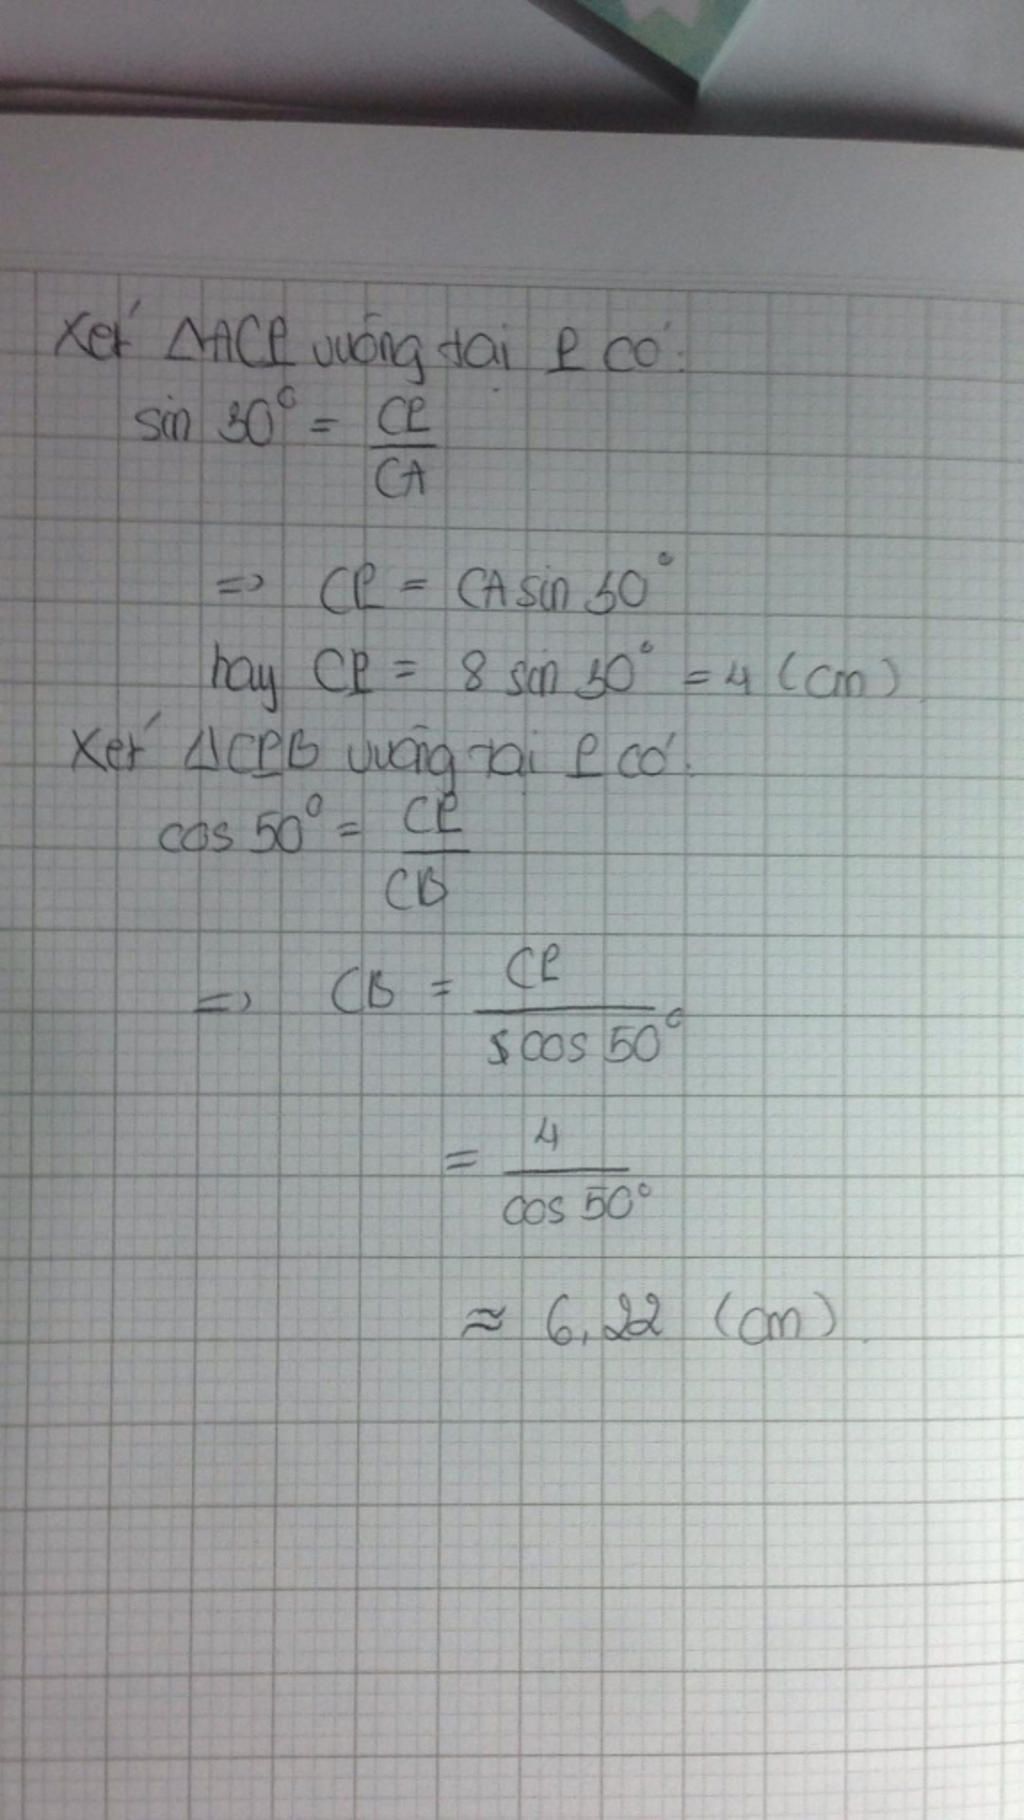 Xét ΔACP vuông tại P có:
sin 30° = CP/CA
=> CP = CA sin 30°
hay CP = 8 sin 30° = 4 (cm)
Xét ΔCPB vuông tại P có:
cos 50° = CP/CB
=> CB = CP/cos 50°
= 4/cos 50°
≈ 6,22 (cm).